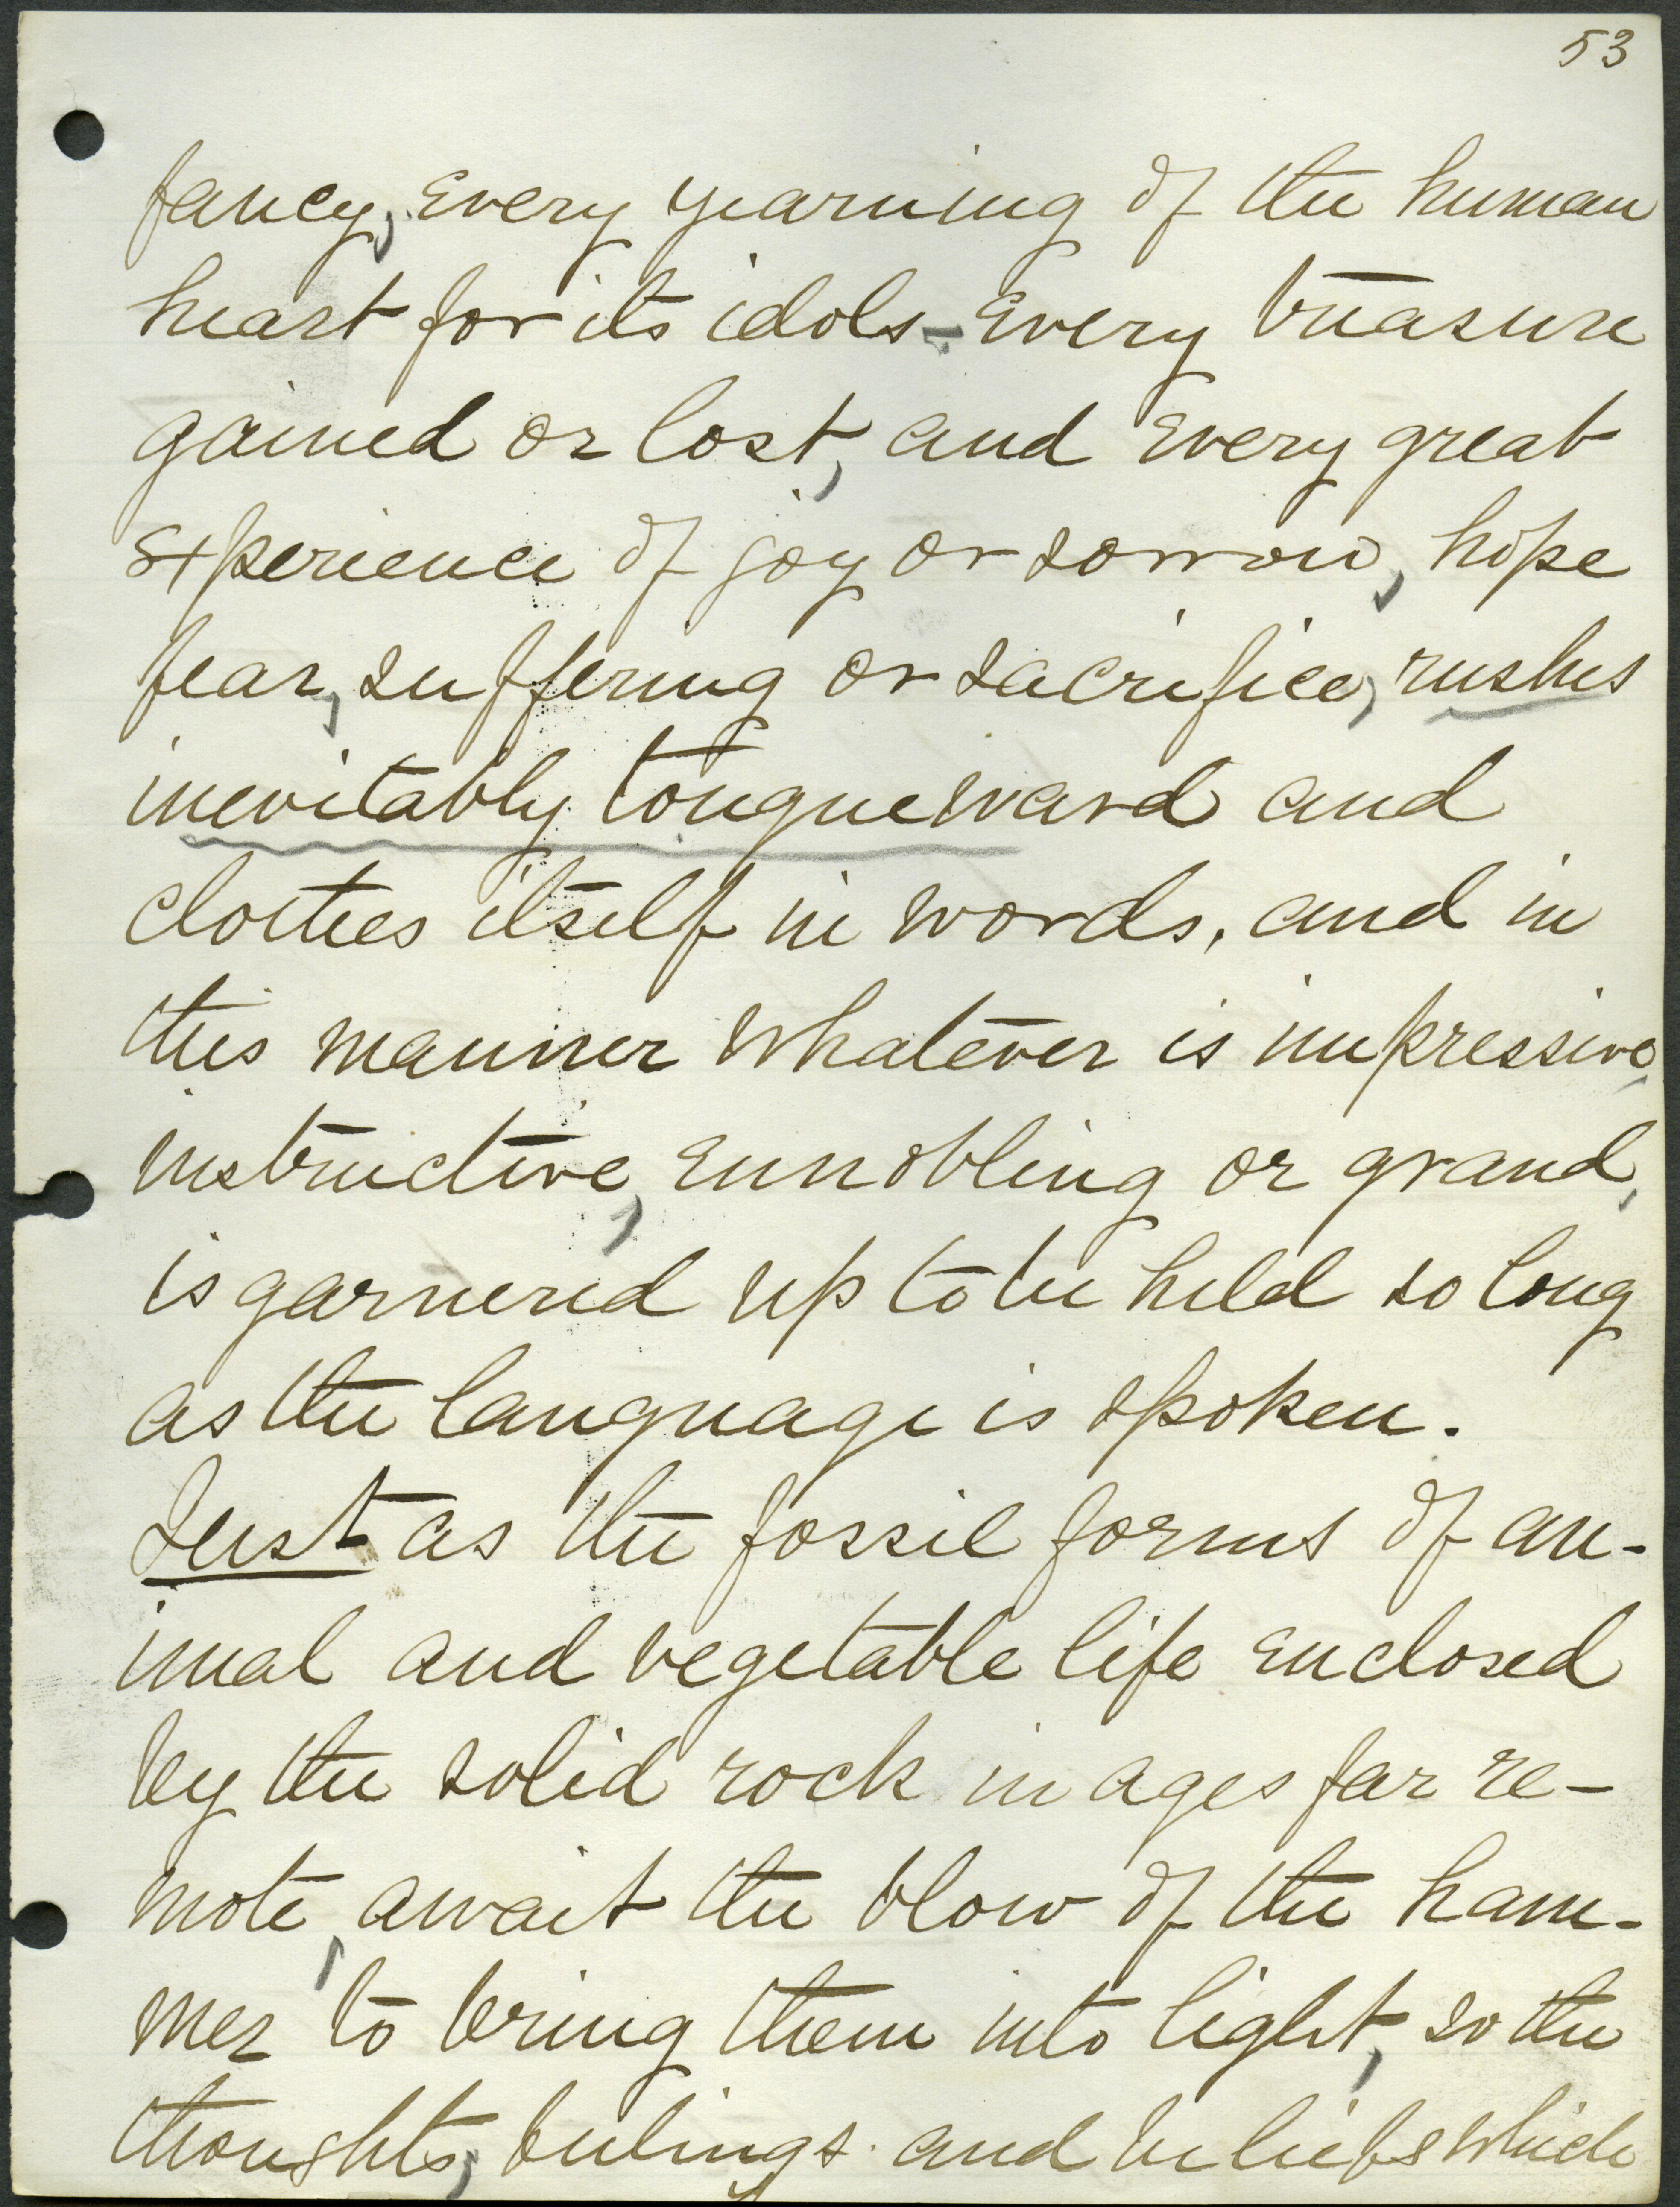 53
fancy, every yearning of the human
heart for its idols - every treasure
gained or lost, and every great
experience of joy or sorrow, hope
fear, suffering or sacrifice, rushes
inevitably tongueward and
clothes itself in words, and in
this manner whatever is impressive,
instructive, ennobling or grand,
is garnered up to be held so long
as the language is spoken.
Just as the fossil forms of an-
imal and vegetable life enclosed
by the solid rock in ages far re-
mote, await the blow of the ham-
mer to bring them into light, so the
thoughts, feelings and beliefs which